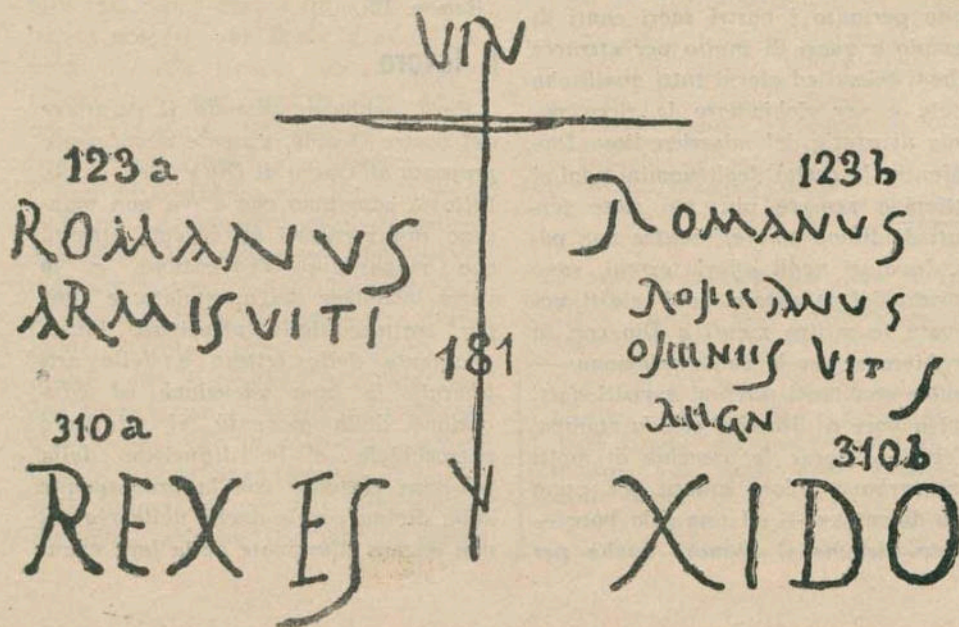 VIN
123a
ROMANUS
ARMISVITI
123b
ROMANUS
ROMANUS
OMNIIS VIT S
MGN
181
V
310a
REX ES
310b
XIDO